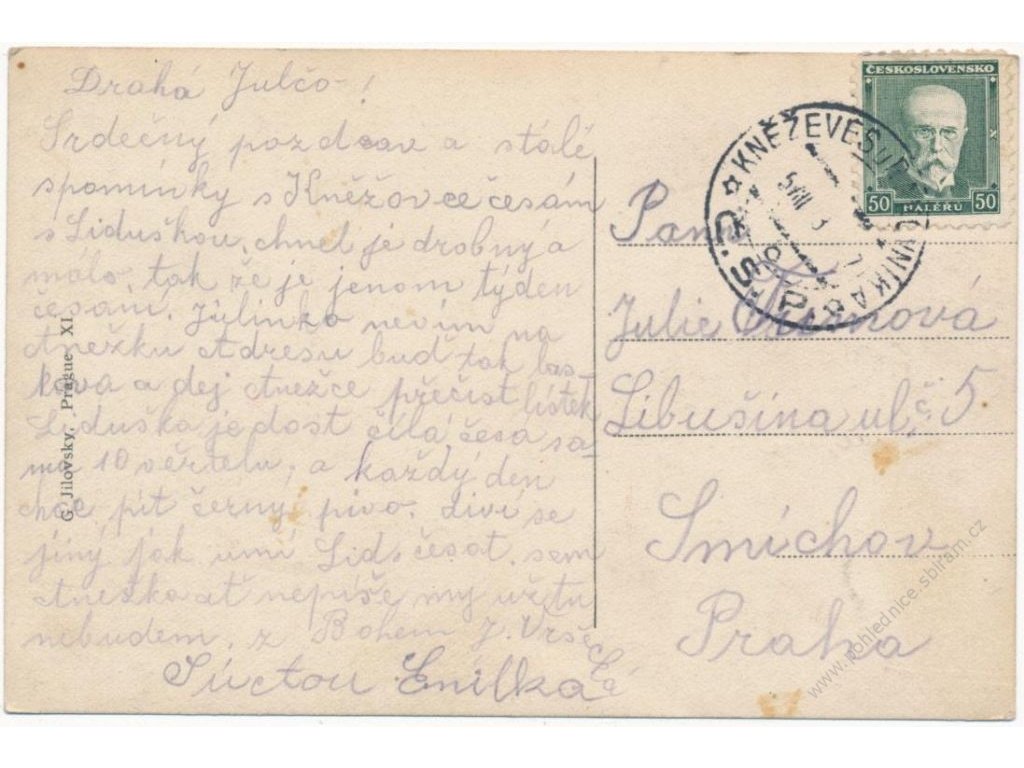 Drahá Julčo!
Srdečný pozdrav a stálé
spomínky s Kněžovce česám
s Liduškou, chmel je drobný a
málo, tak že je jenom týden
česání, Julinko nevím na
Anežku Adresu buď tak las-
kava a dej Anežce přečíst lístek
Liduška je dost čilá česá sa-
mu 10 věrtelu, a každý den
chce pít černý pivo. diví se
jiný jak umí Lids česat. sem
Anežka ať nepíše my už tu
nebudem. z Bohem J. Vrše
cká
Súctou Emilka
G. Jilovsky, Prague XI.
ČESKOSLOVENSKO
50 HALÉŘŮ 50
KNĚŽEVES U RAKOVNÍKA
Č.S.P.
Panna
Julie
Libušina ul. č. 5
Smíchov
Praha
www.pohlednice.sbiram.cz